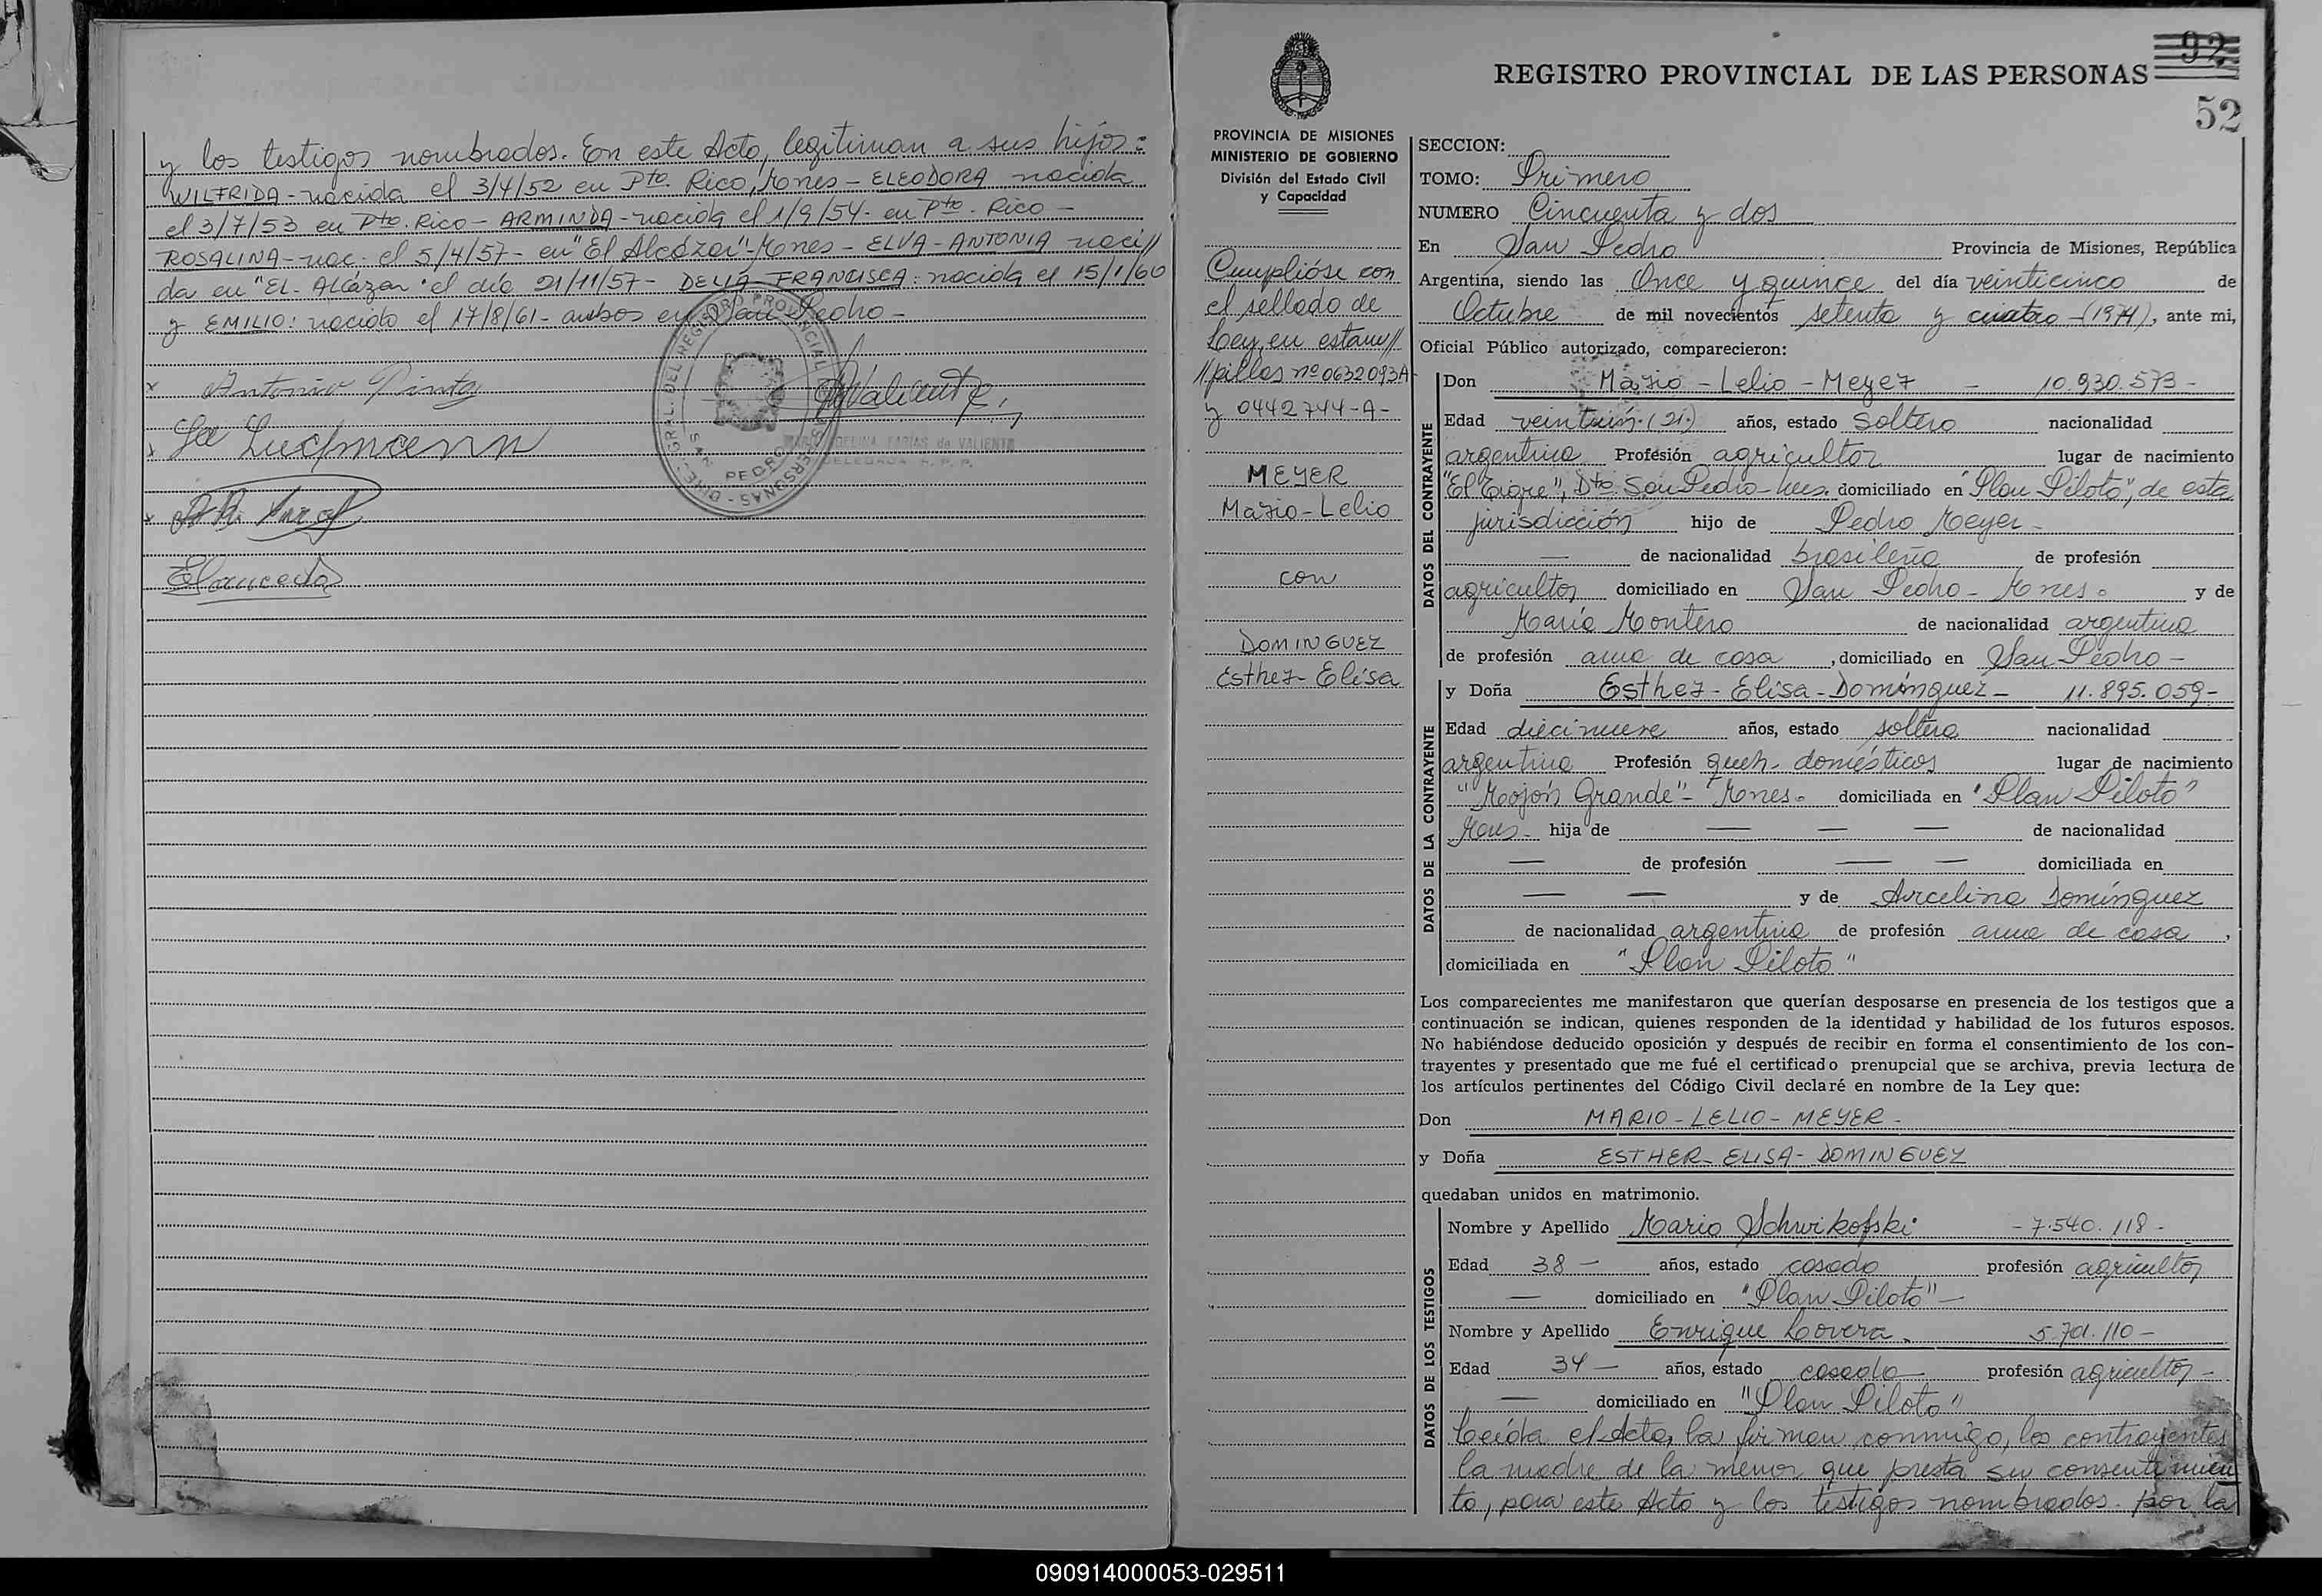 y los testigos nombrados. En este Acto, legitiman a sus hijos:
WILFRIDA - nacida el 3/4/52 en Pto. Rico, Mnes - ELEODORA nacida
el 3/7/53 en Pto. Rico - ARMINDA - nacida el 1/9/54 - en Pto. Rico -
ROSALINA - nac. el 5/4/57 - en "El Alcázar" - Mnes - ELVA - ANTONIA naci//
da en "EL - Alcázar" el día 21/11/57 - DELIA FRANCISCA: nacida el 15/1/60
y EMILIO: nacido el 17/8/61 - ambos en San Pedro -
x Antonio Pinto
x
x
DIREC. GRAL. DEL REGISTRO PROVINCIAL DE LAS PERSONAS
SAN PEDRO
FARIAS de VALIENTE
DELEGADA R. P. P.
92
REGISTRO PROVINCIAL DE LAS PERSONAS
52
PROVINCIA DE MISIONES
MINISTERIO DE GOBIERNO
División del Estado Civil
y Capacidad
Cumplióse con
el sellado de
Ley, en estam//
//pillas nº 0632093A
y 0442744-A-
MEYER
Mario-Lelio
con
DOMINGUEZ
Esther-Elisa
SECCION:
TOMO: Primero
NUMERO Cincuenta y dos
En San Pedro Provincia de Misiones, República
Argentina, siendo las Once y quince del día veinticinco de
Octubre de mil novecientos setenta y cuatro - (1974), ante mi,
Oficial Público autorizado, comparecieron:
DATOS DEL CONTRAYENTE
Don Mario - Lelio - Meyer - 10.930.573 -
Edad veintiún (21) años, estado soltero nacionalidad
argentina Profesión agricultor lugar de nacimiento
"El Tigre", Dto. San Pedro - Mnes. domiciliado en "Plan Piloto", de esta
jurisdicción hijo de Pedro Meyer -
— de nacionalidad brasileña de profesión
agricultor domiciliado en San Pedro - Mnes. y de
María Montero de nacionalidad argentina
de profesión ama de casa, domiciliado en San Pedro -
DATOS DE LA CONTRAYENTE
y Doña Esther - Elisa - Domínguez - 11.895.059 -
Edad diecinueve años, estado soltera nacionalidad
argentina Profesión queh. domésticos lugar de nacimiento
"Mojón Grande" - Mnes. domiciliada en "Plan Piloto"
Mnes - hija de — — — de nacionalidad
— de profesión — — domiciliada en
— — y de Arcelina Domínguez
de nacionalidad argentina de profesión ama de casa,
domiciliada en "Plan Piloto"
Los comparecientes me manifestaron que querían desposarse en presencia de los testigos que a
continuación se indican, quienes responden de la identidad y habilidad de los futuros esposos.
No habiéndose deducido oposición y después de recibir en forma el consentimiento de los con-
trayentes y presentado que me fué el certificado prenupcial que se archiva, previa lectura de
los artículos pertinentes del Código Civil declaré en nombre de la Ley que:
Don MARIO - LELIO - MEYER -
y Doña ESTHER - ELISA - DOMINGUEZ
quedaban unidos en matrimonio.
DATOS DE LOS TESTIGOS
Nombre y Apellido Mario Schwikofski - 7.540.118 -
Edad 38 - años, estado casado profesión agricultor
— domiciliado en "Plan Piloto" -
Nombre y Apellido Enrique Lovera. 5.701.110 -
Edad 34 - años, estado casado profesión agricultor -
— domiciliado en "Plan Piloto"
Leída el Acta, la firman conmigo, los contrayentes
la madre de la menor que presta su consentimien
to, para este Acto y los testigos nombrados. por la
090914000053-029511